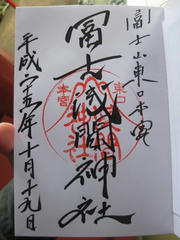 富士山東口本宮
冨士浅間神社
東口
本宮
平成二十五年十月十九日